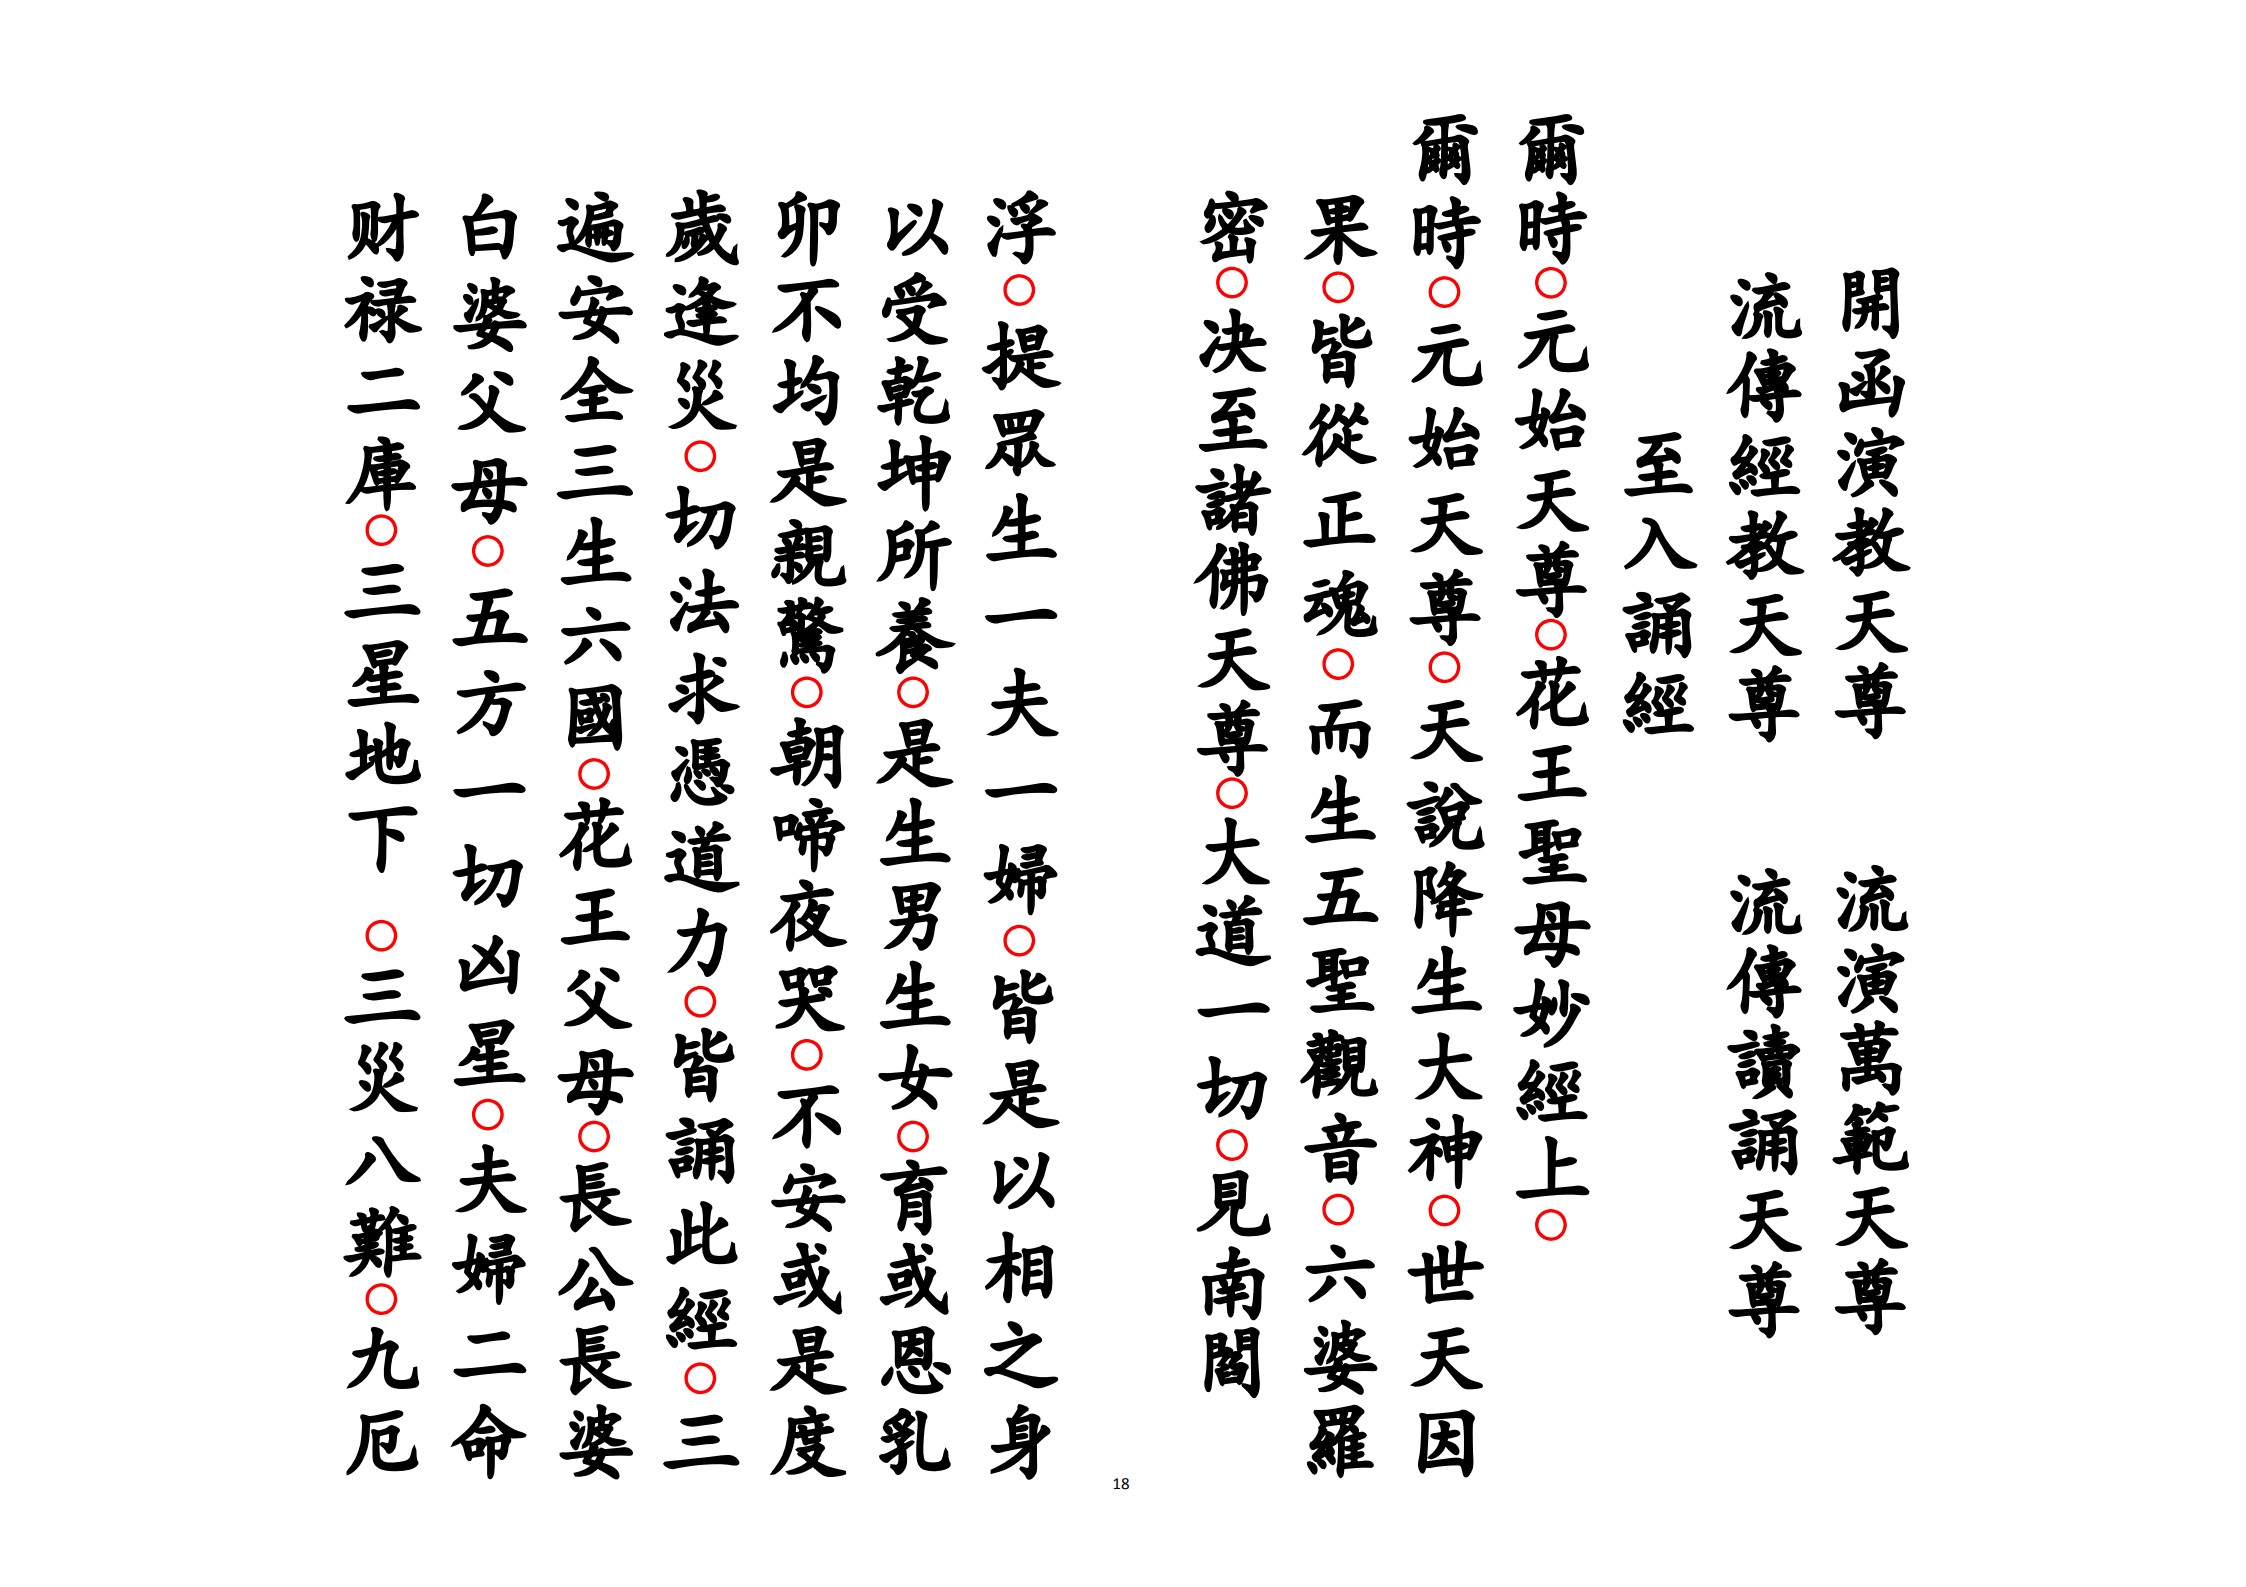 開函演教天尊　流演萬範天尊
流傳經教天尊　流傳讀誦天尊
至入誦經
爾時○元始天尊○花王聖母妙經上○
爾時○元始天尊○天說降生大神○世天因
果○皆從正魂○而生五聖觀音○六婆羅
密○决至諸佛天尊○大道一切○見南閻
浮○提眾生一夫一婦○皆是以相之身
以受乾坤所養○是生男生女○育或恩乳
卯不均是親驚○朝啼夜哭○不安或是度
歲逢災○切法求憑道力○皆誦此經○三
遍安全三生六國○花王父母○長公長婆
白婆父母○五方一切凶星○夫婦二命
财禄二庫○三星地下　○三災八難○九厄
18